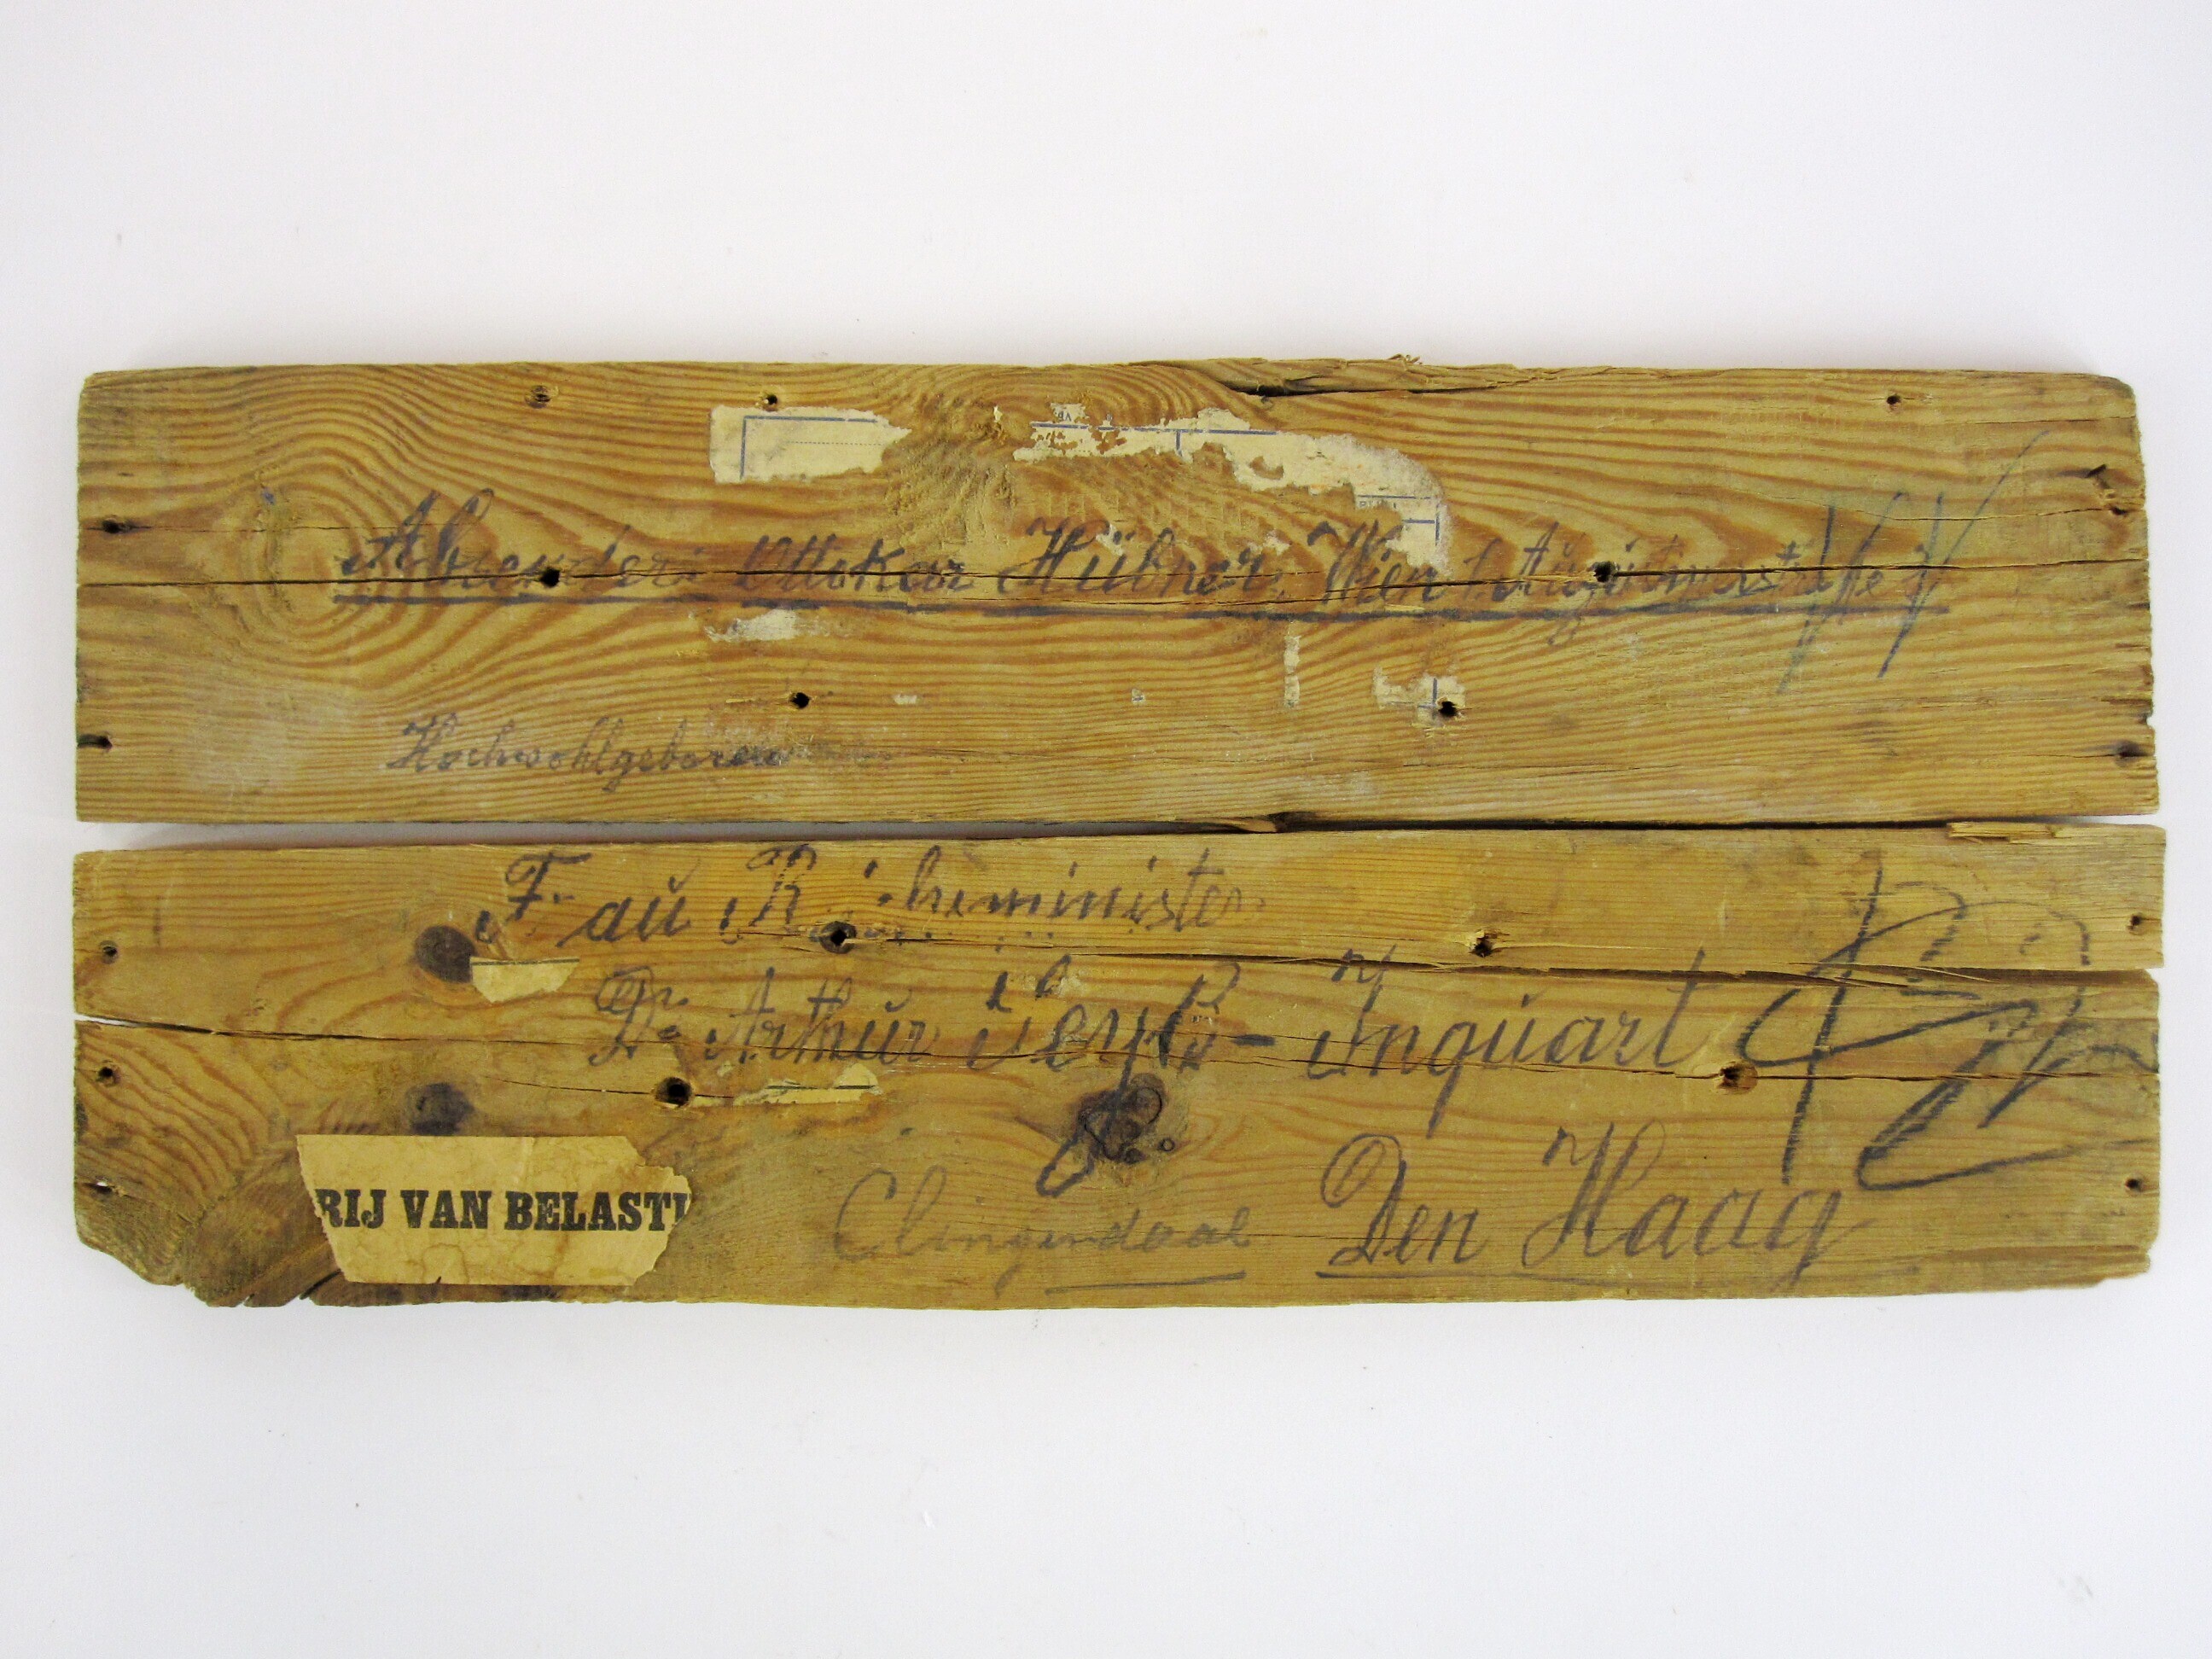 Absender: Ottokar Hübner, Wien 1. Augustinerstraße
Hochwohlgeboren
Frau Reichsminister
Dr. Arthur Seyß-Inquart
RIJ VAN BELASTI
Clingendaal Den Haag